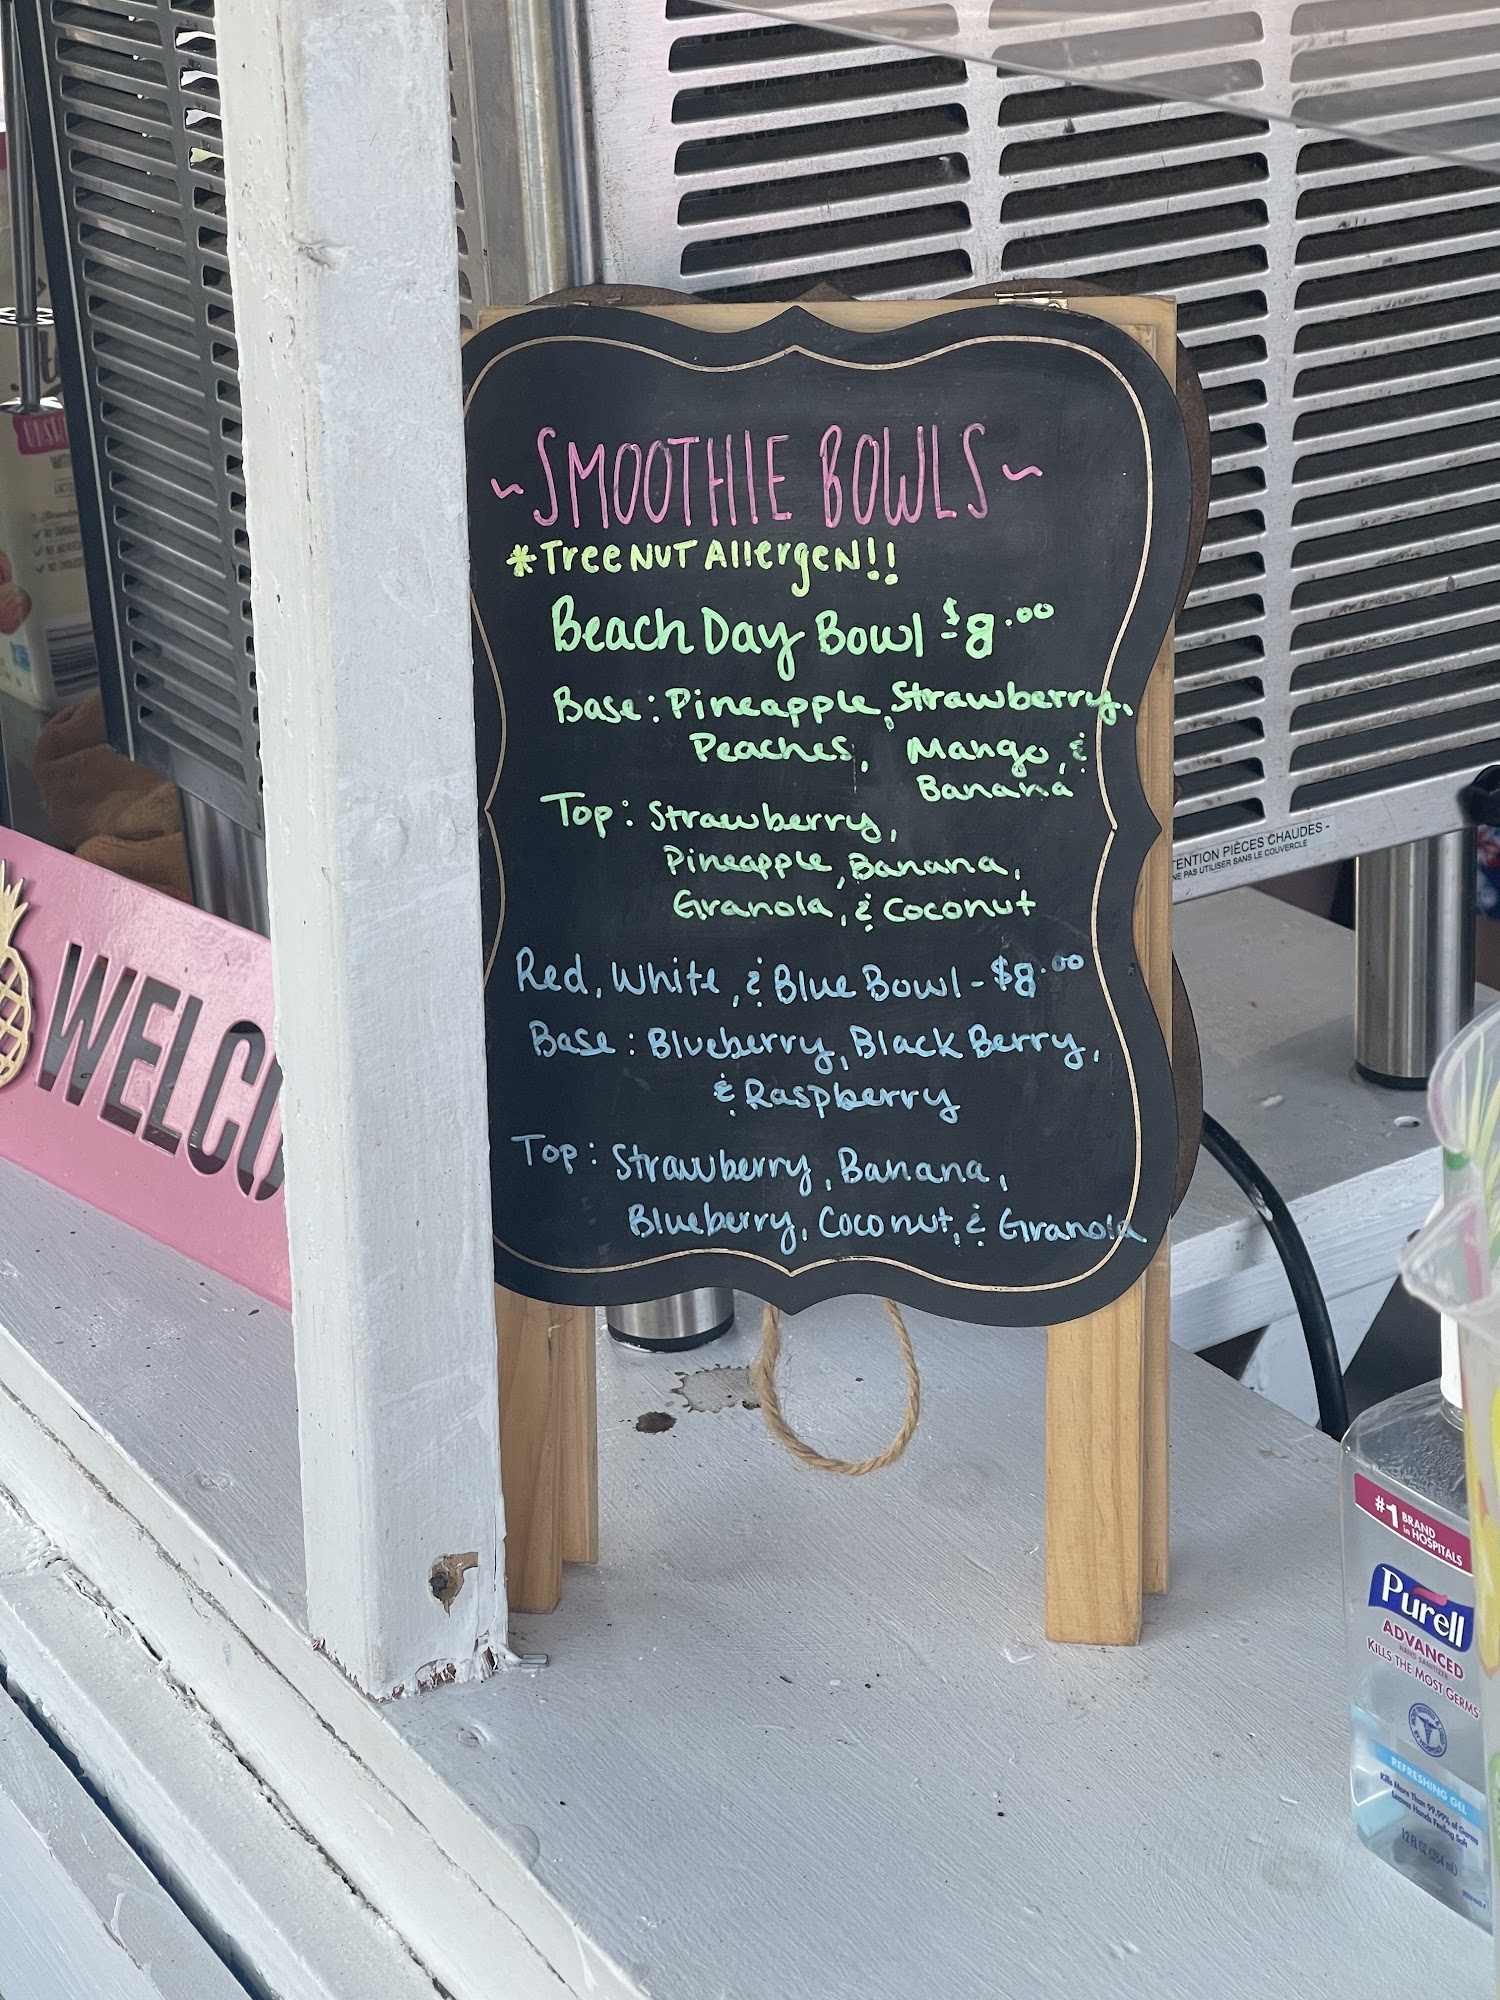 ~SMOOTHIE BOWLS~
*Tree NUT AllergeN!!
Beach Day Bowl -$8.00
Base: Pineapple, Strawberry,
Peaches, Mango, &
Banana
Top: Strawberry,
Pineapple, Banana,
Granola, & Coconut
Red, White, & Blue Bowl - $8.00
Base: Blueberry, Black Berry,
& Raspberry
Top: Strawberry, Banana,
Blueberry, Coconut, & Granola
WELCO
TENTION PIÈCES CHAUDES -
NE PAS UTILISER SANS LE COUVERCLE
#1 BRAND
in HOSPITALS
PURELL
ADVANCED
HAND SANITIZER
KILLS THE MOST GERMS
REFRESHING GEL
Kills More Than 99.99% of Germs
Leaves Hands Feeling Soft
12 FL OZ (354 mL)